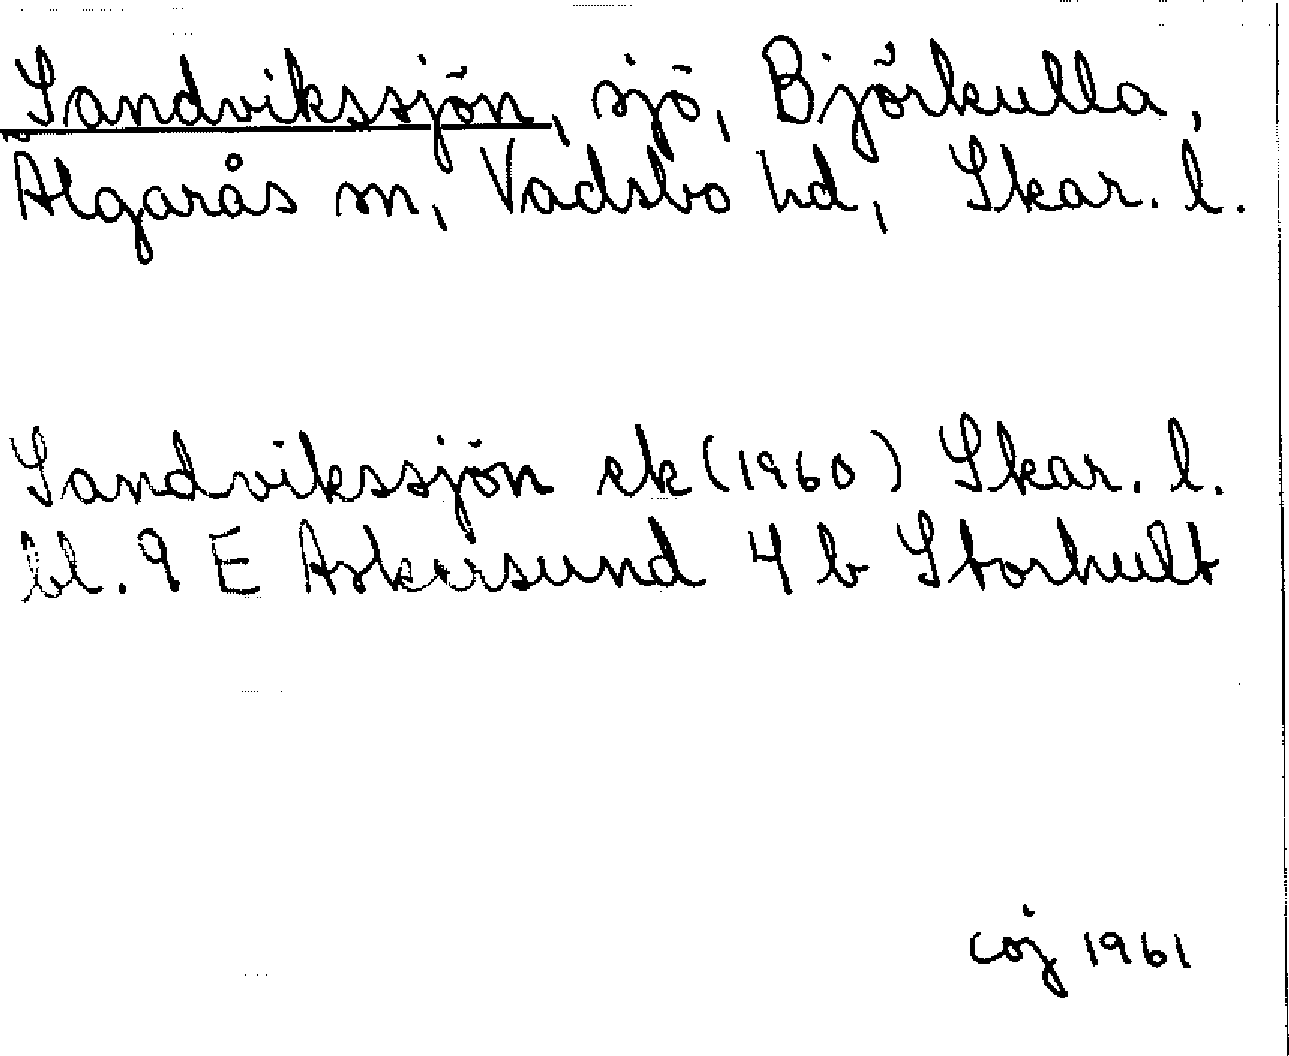 Sandvikssjön, sjö, Björkulla,
Älgarås sn, Vadsbo hd, Skar. l.
Sandvikssjön ek (1960) Skar. l.
bl. 9 E Askersund 4 b Storhult
coj 1961